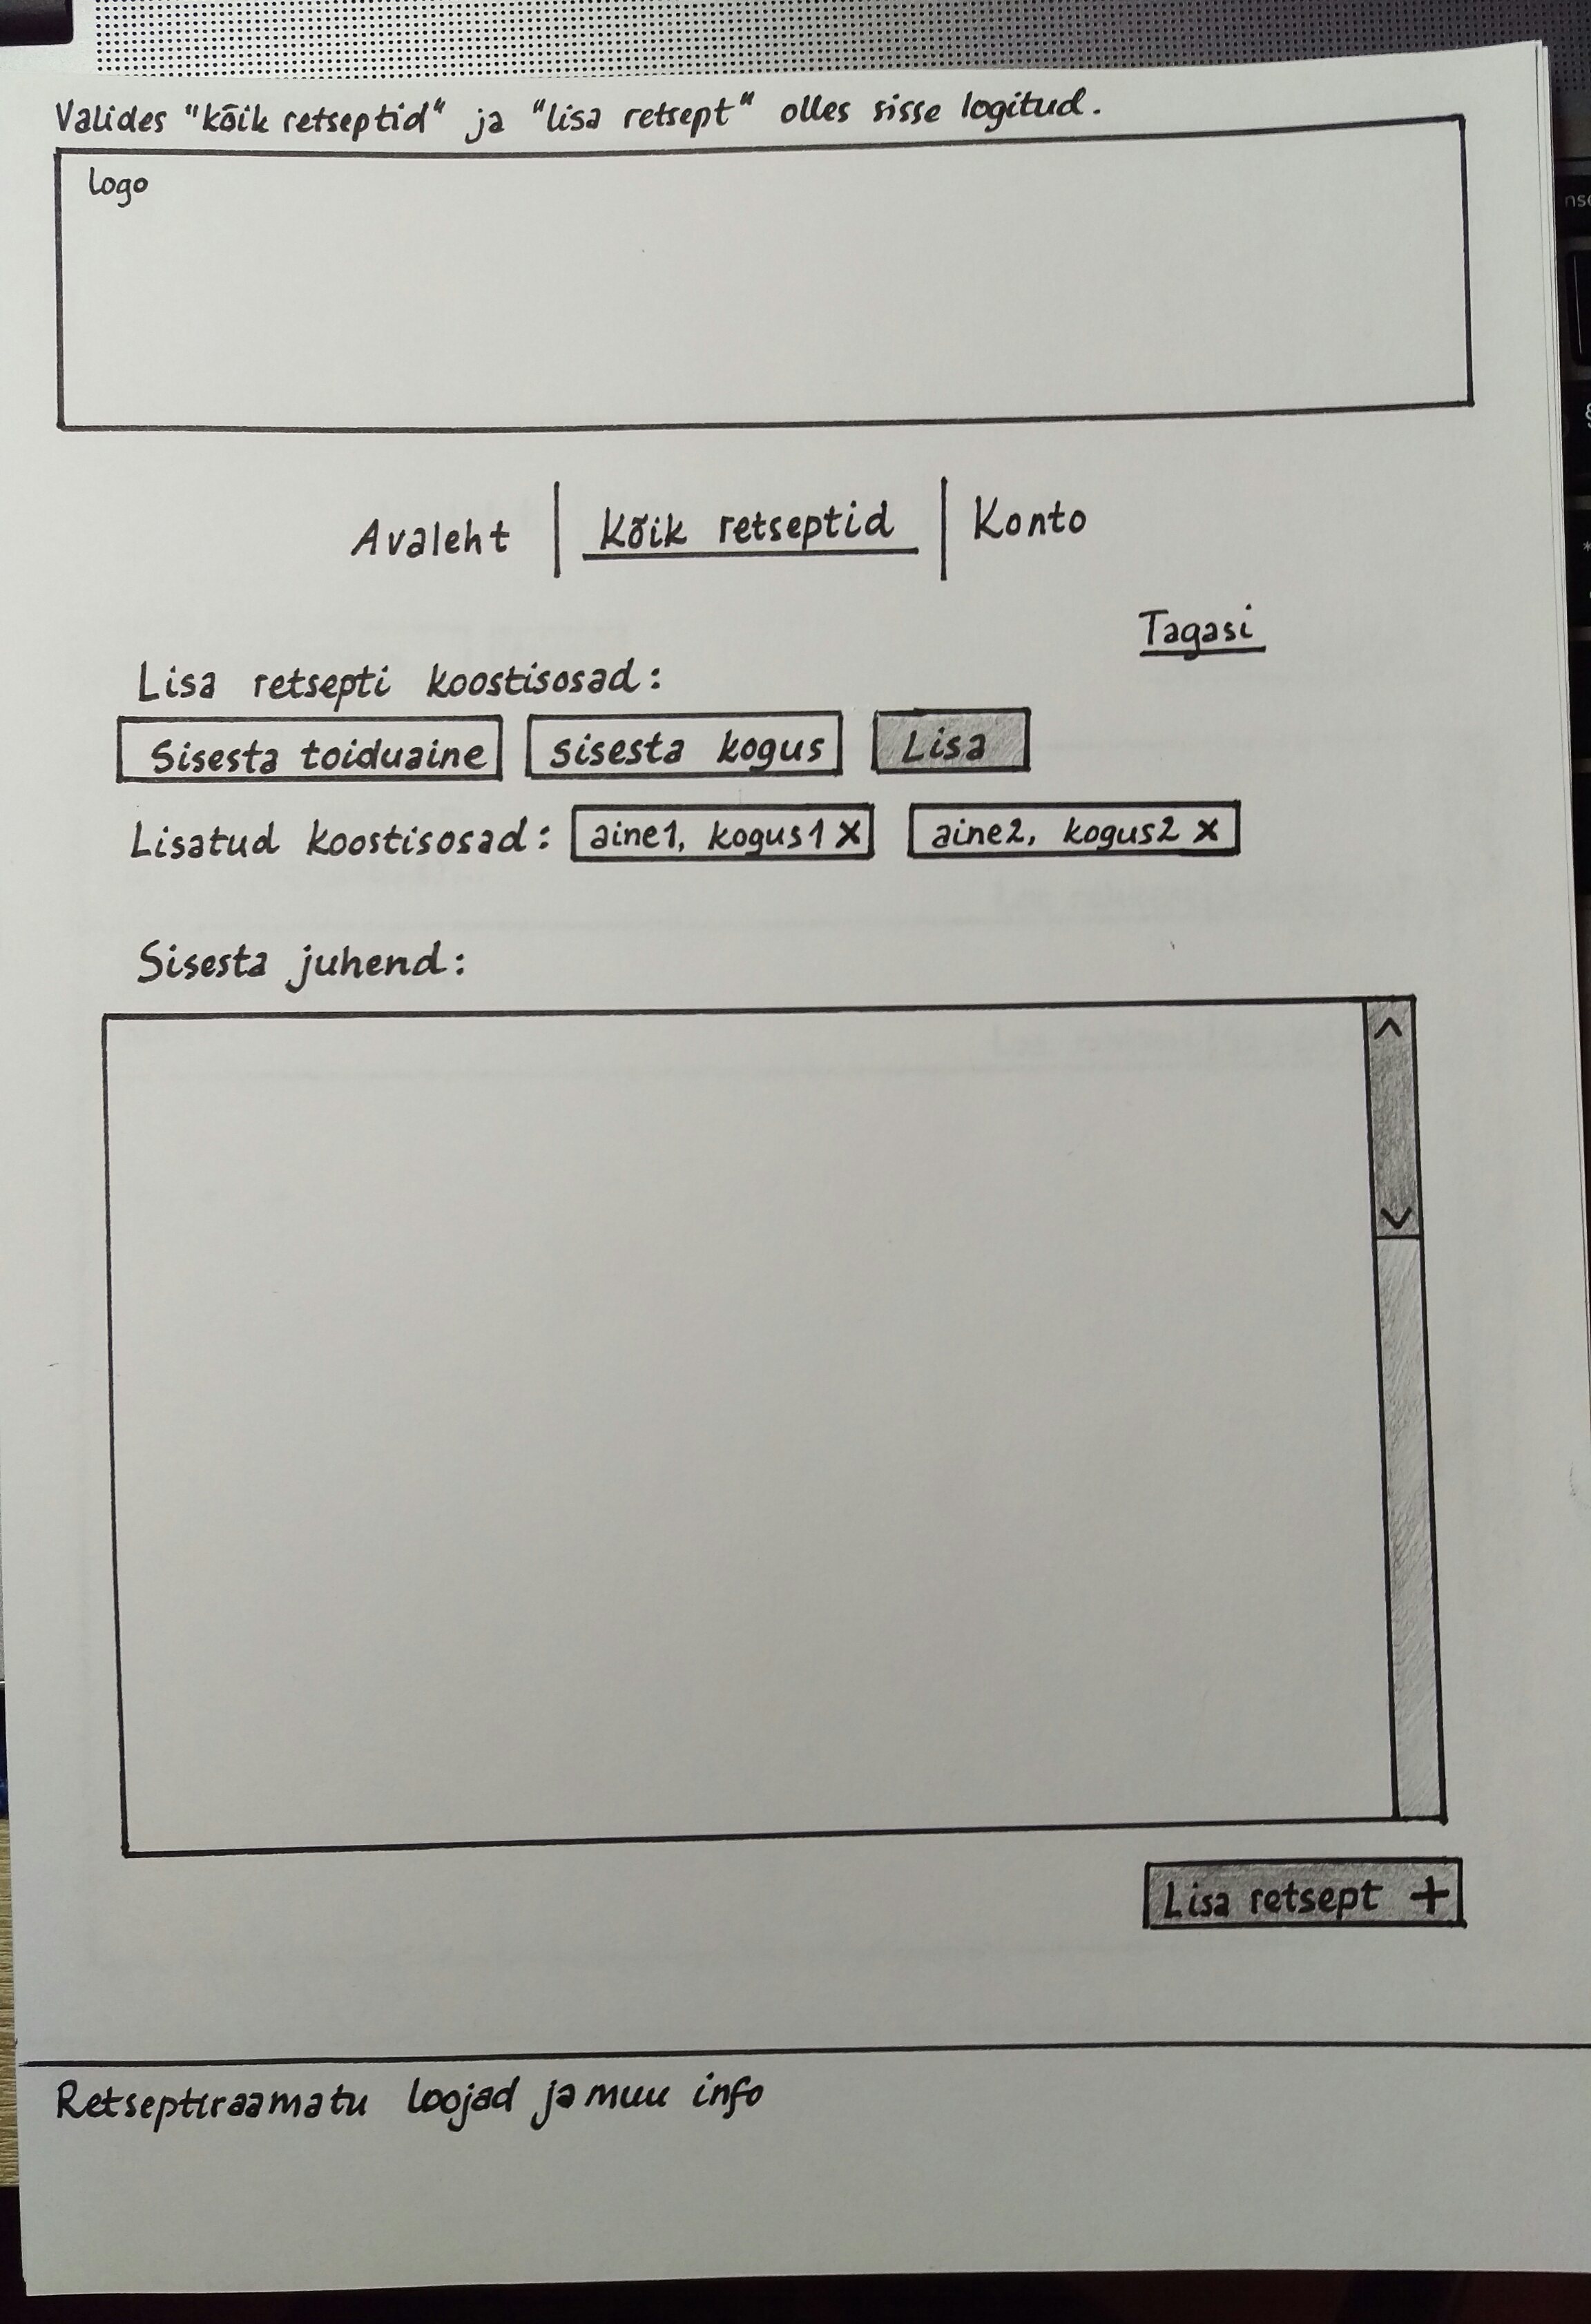 Valides "kõik retseptid" ja "lisa retsept" olles sisse logitud.
Logo
Avaleht | Kõik retseptid | Konto
Tagasi
Lisa retsepti koostisosad:
Sisesta toiduaine sisesta kogus Lisa
Lisatud koostisosad: aine1, kogus1 x aine2, kogus2 x
Sisesta juhend:
Lisa retsept +
Retseptiraamatu loojad ja muu info